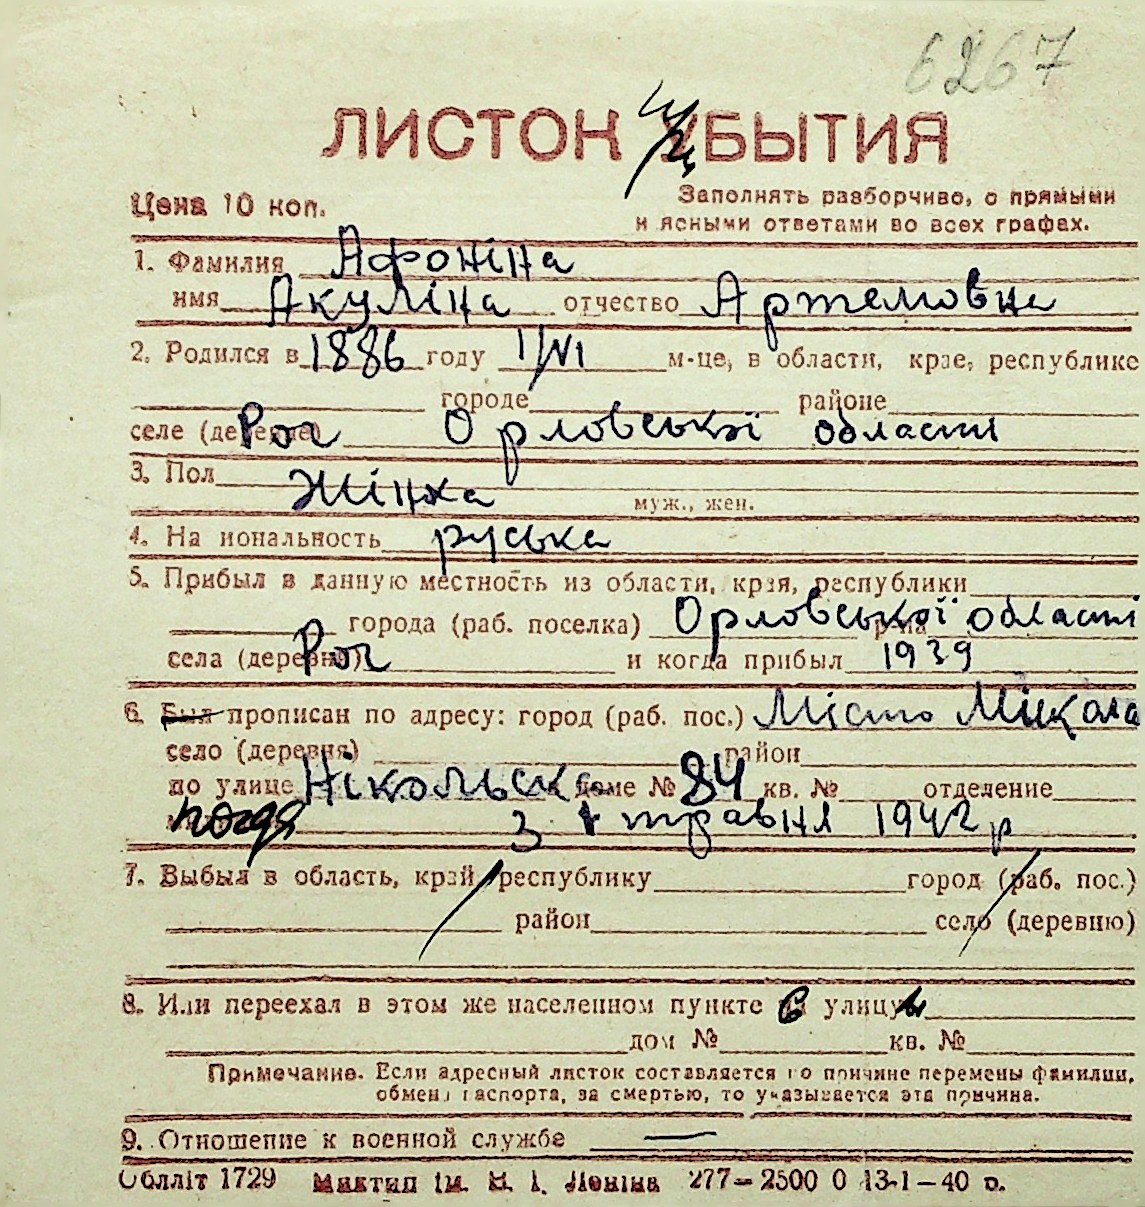 6267
ЛИСТОН УБЫТИЯ
Цена 10 коп.
Заполнять разборчиво, с прямыми
и ясными ответами во всех графах.
1. Фамилия Афоніна
имя Акуліна отчество Артемовна
2. Родился в 1886 году 1/VI м-це, в области, крае, республике
городе районе
селе (деревне) Рог Орловської області
3. Пол Жінка муж., жен.
4. На иональность руська
5. Прибыл в данную местность из области, края, республики
города (раб. поселка) Орловської області р-на
села (деревни) Рог и когда прибыл 1939
6. Был прописан по адресу: город (раб. пос.) Місто Мікола
село (деревня) район
по улице Нікольска доме № 84 кв. № отделение
3 травня 1942 р
7. Выбыл в область, край, республику город (раб. пос.)
район село (деревню)
8. Или переехал в этом же населенном пункте в улицы
дом № кв. №
Примечание. Если адресный листок составляется по причине перемены фамилии,
обмена паспорта, за смертью, то указывается эта причина.
9. Отношение к военной службе —
Облліт 1729 Миктип ім. В. І. Леніна 277—2500 0 13-1—40 р.